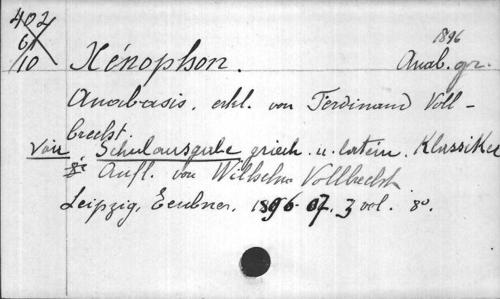 402
61
10
1896
Xénophon.
Anab. gr.
Anabasis, erkl. von Ferdinand Voll-
brecht.
Voir Schulausgabe griech. u. latein. Klassiker
8e Aufl. von Wilhelm Vollbrecht
Leipzig, Teubner, 1896-07. 3 vol. 8o.